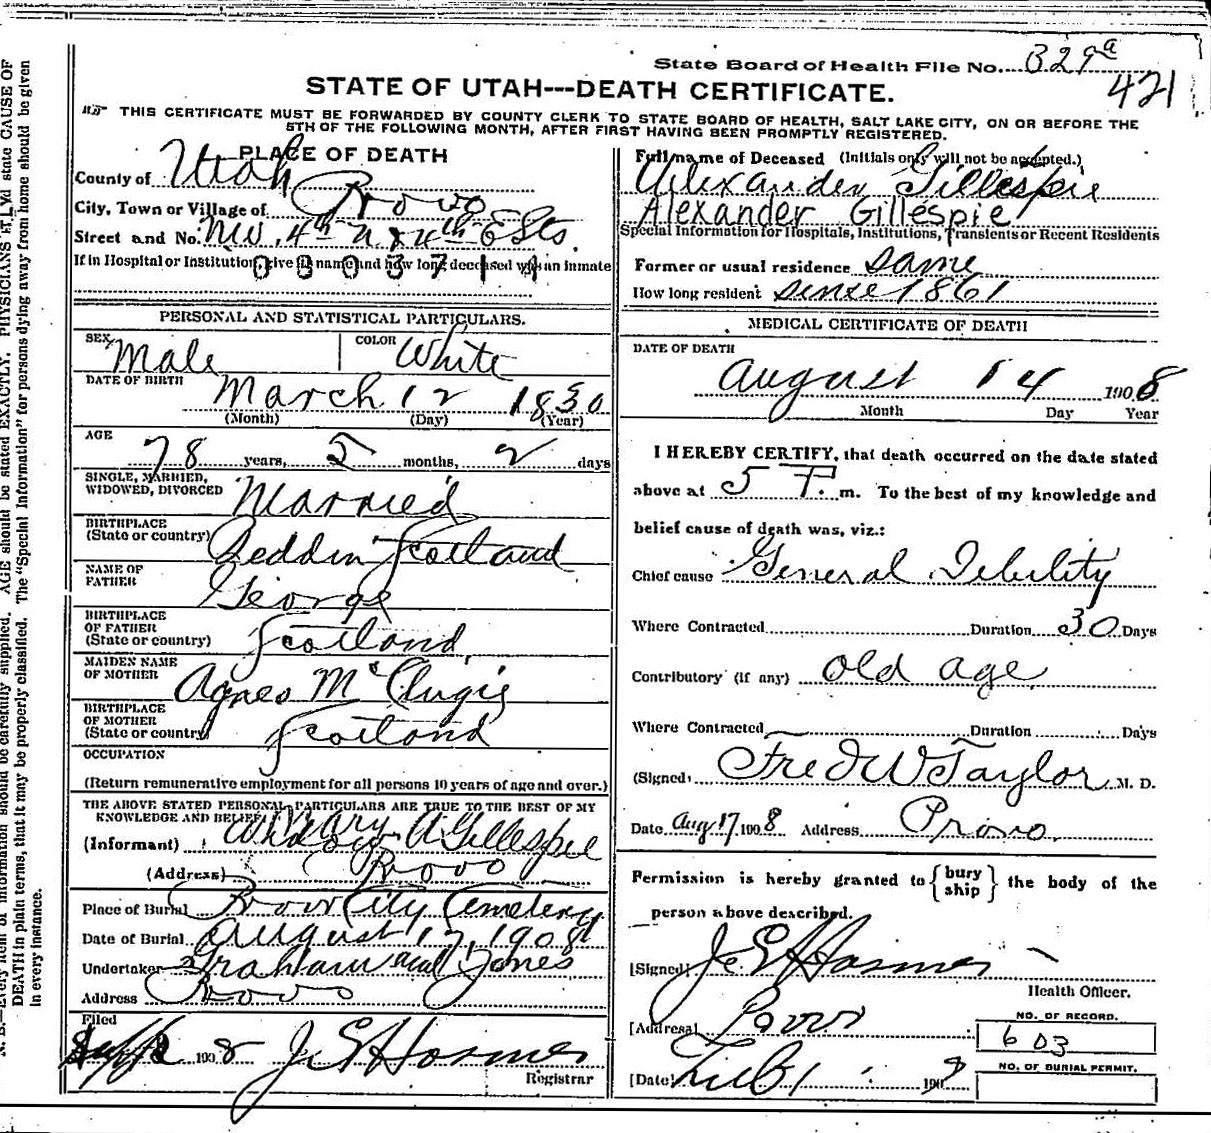 State Board of Health File No. 329a
421
STATE OF UTAH---DEATH CERTIFICATE.
THIS CERTIFICATE MUST BE FORWARDED BY COUNTY CLERK TO STATE BOARD OF HEALTH, SALT LAKE CITY, ON OR BEFORE THE
5TH OF THE FOLLOWING MONTH, AFTER FIRST HAVING BEEN PROMPTLY REGISTERED.
PLACE OF DEATH
County of Utah
City, Town or Village of Provo
Street and No. NW. 4th N & 4th E Sts.
If in Hospital or Institution give its name and how long deceased was an inmate
PERSONAL AND STATISTICAL PARTICULARS.
SEX Male COLOR White
DATE OF BIRTH March 12 1830
(Month) (Day) (Year)
AGE 78 years, 5 months, 2 days
SINGLE, MARRIED,
WIDOWED, DIVORCED Married
BIRTHPLACE
(State or country) Scotland
NAME OF
FATHER George
BIRTHPLACE
OF FATHER
(State or country) Scotland
MAIDEN NAME
OF MOTHER Agnes
BIRTHPLACE
OF MOTHER
(State or country) Scotland
OCCUPATION
(Return remunerative employment for all persons 10 years of age and over.)
THE ABOVE STATED PERSONAL PARTICULARS ARE TRUE TO THE BEST OF MY
KNOWLEDGE AND BELIEF
(Informant) Mary A Gillespie
(Address) Provo
Place of Burial Provo City Cemetery
Date of Burial August 17, 1908
Undertaker Graham and Jones
Address Provo
Filed 1908 J E Hosmer
Registrar
Full name of Deceased (Initials only will not be accepted.)
Alexander Gillespie
Alexander Gillespie
Special Information for Hospitals, Institutions, Transients or Recent Residents
Former or usual residence Same
How long resident since 1861
MEDICAL CERTIFICATE OF DEATH
DATE OF DEATH
August 14 1908
Month Day Year
I HEREBY CERTIFY, that death occurred on the date stated
above at 5 P. m. To the best of my knowledge and
belief cause of death was, viz.:
Chief cause General Debility
Where Contracted Duration 30 Days
Contributory (if any) Old age
Where Contracted Duration Days
(Signed) Fred W Taylor M. D.
Date Aug 17 1908 Address Provo
Permission is hereby granted to {bury ship} the body of the
person above described.
[Signed] J E Hosmer
Health Officer.
[Address] Provo
NO. OF RECORD.
603
[Date] 190
NO. OF BURIAL PERMIT.
AGE should be stated EXACTLY. PHYSICIANS
DEATH in plain terms, that it may be properly classified. The "Special Information" for persons dying away from home should be given
in every instance.